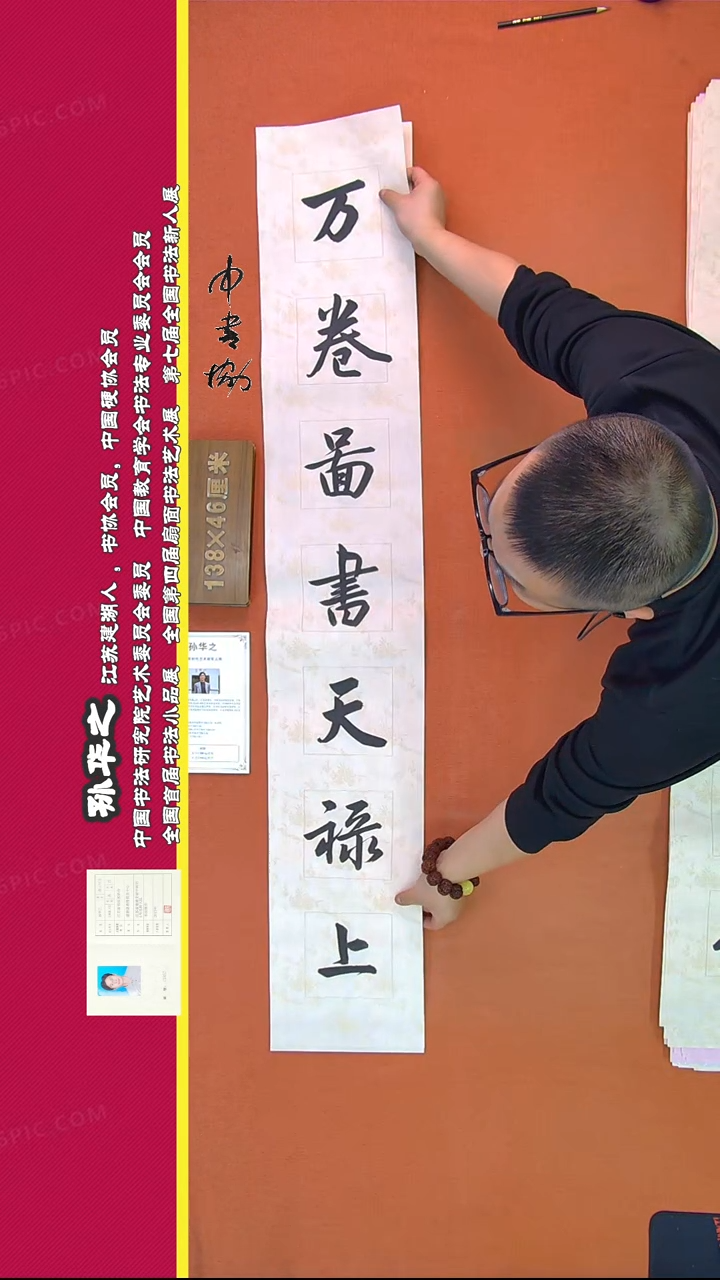 孙华之 江苏建湖人，书协会员，中国硬协会员
中国书法研究院艺术委员会委员 中国教育学会书法专业委员会会员
全国首届书法小品展 全国第四届扇面书法艺术展 第七届全国书法新人展
中书协
138×46厘米
孙华之
万
卷
图
書
天
禄
上